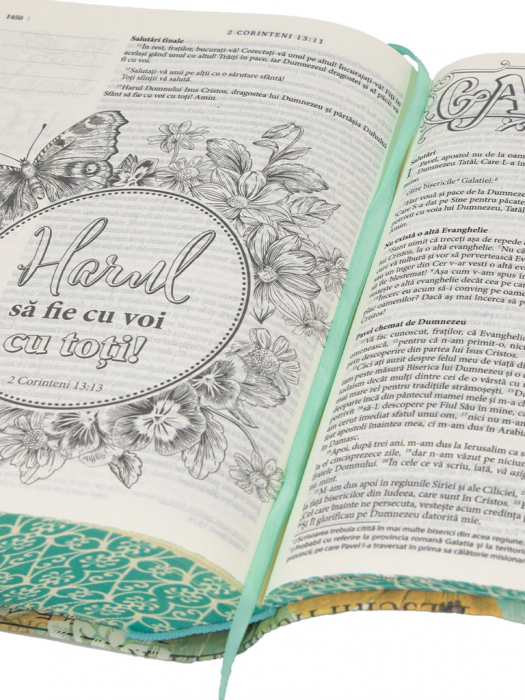 1450
2 CORINTENI 13:11
Salutări finale
¹¹În rest, fraților, bucurați-vă! Corectați-vă unul pe altul! Încurajați-vă! Fiți în
același gând unul cu altul! Trăiți în pace, iar Dumnezeul dragostei și al păcii va
fi cu voi.
¹²Salutați-vă unii pe alții cu o sărutare sfântă!
Toți sfinții vă salută.
¹³Harul Domnului Isus Cristos, dragostea lui Dumnezeu și părtășia Duhului
Sfânt să fie cu voi cu toți! Amin.
Harul
să fie cu voi
cu toți!
2 Corinteni 13:13
GA
Salutări
Pavel, apostol nu de la oam
Dumnezeu Tatăl, Care L-a în
către Bisericile Galatiei:
Har vouă și pace de la Dumnezeu
Care S-a dat pe Sine pentru păcate
potrivit cu voia lui Dumnezeu, Tatăl
Amin.
Nu există o altă Evanghelie
Sunt uimit că treceți așa de repede
Cristos, la o altă evanghelie. ⁷Nu că
care vă tulbură și vor să pervertească Ev
un înger din Cer v-ar vesti o altă
să fie blestemat! ⁹Așa cum v-am spus în
evanghelie decât cea pe car
Încerc eu acum să-i conving pe oameni
plac oamenilor? Dacă aș mai încerca să p
Cristos!
Pavel chemat de Dumnezeu
Vă fac cunoscut, fraților, că Evangheli
omenească, ¹²pentru că n-am primit-o, nici
prin descoperire din partea lui Isus Cristos.
Căci ați auzit despre felul meu de viață din
peste măsură Biserica lui Dumnezeu și o
iudaism decât mulți dintre cei de o vârstă cu m
mai mare zel pentru tradițiile strămoșești.
deoparte încă din pântecul mamei mele și m-a ch
potrivit ¹⁶să-L descopere pe Fiul Său în mine, c
am cerut imediat sfatul unui om, ¹⁷nici nu m-am
fost apostoli înaintea mea, ci m-am dus în Arabia
în Damasc.
Apoi, după trei ani, m-am dus la Ierusalim ca s
la el cincisprezece zile, ¹⁹dar n-am văzut pe niciun
fratele Domnului. ²⁰În cele ce vă scriu, iată, vă asig
nu mint!
M-am dus apoi în regiunile Siriei și ale Ciliciei,
la față bisericilor din Iudeea, care sunt în Cristos.
Cel care înainte ne persecuta, vestește acum credința
Și Îl glorificau pe Dumnezeu datorită mie.
Scrisoarea trebuia citită în mai multe biserici din acea regiune,
Probabil cu referire la provincia romană Galatia și la teritor
provincii, pe care Pavel l-a traversat în prima sa călătorie misiona